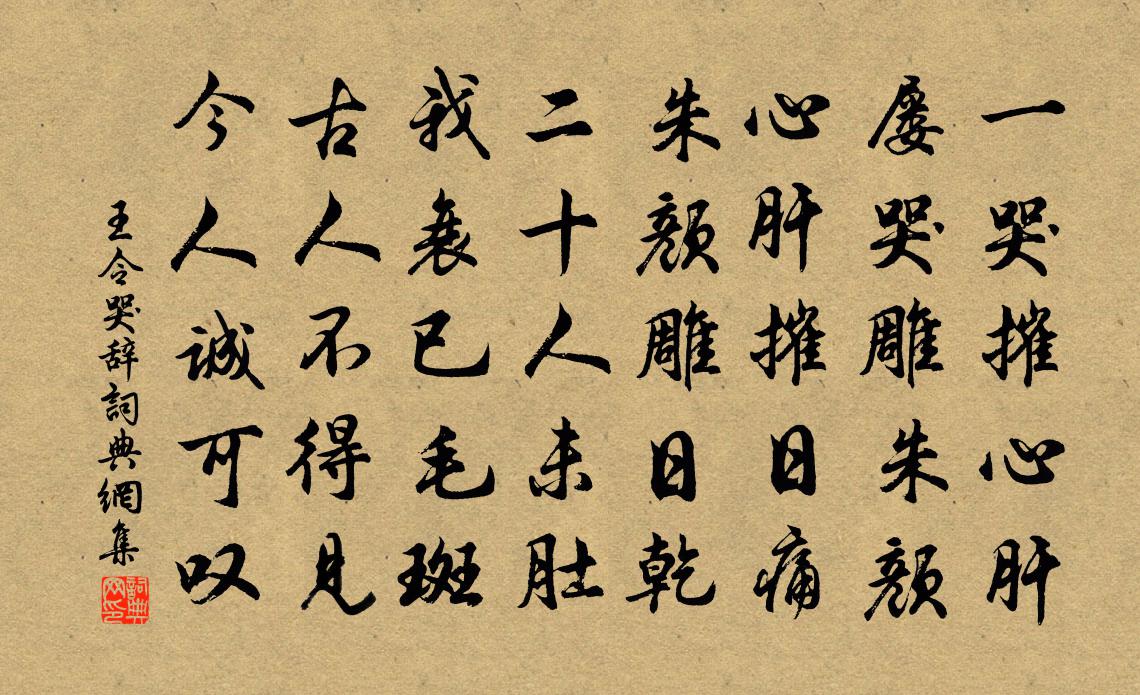 一哭摧心肝
屡哭雕朱顏
心肝摧日痛
朱顏雕日乾
二十人未肚
我衰已毛斑
古人不得見
今人誠可叹
王令哭辞詞典網集
詞典
网印